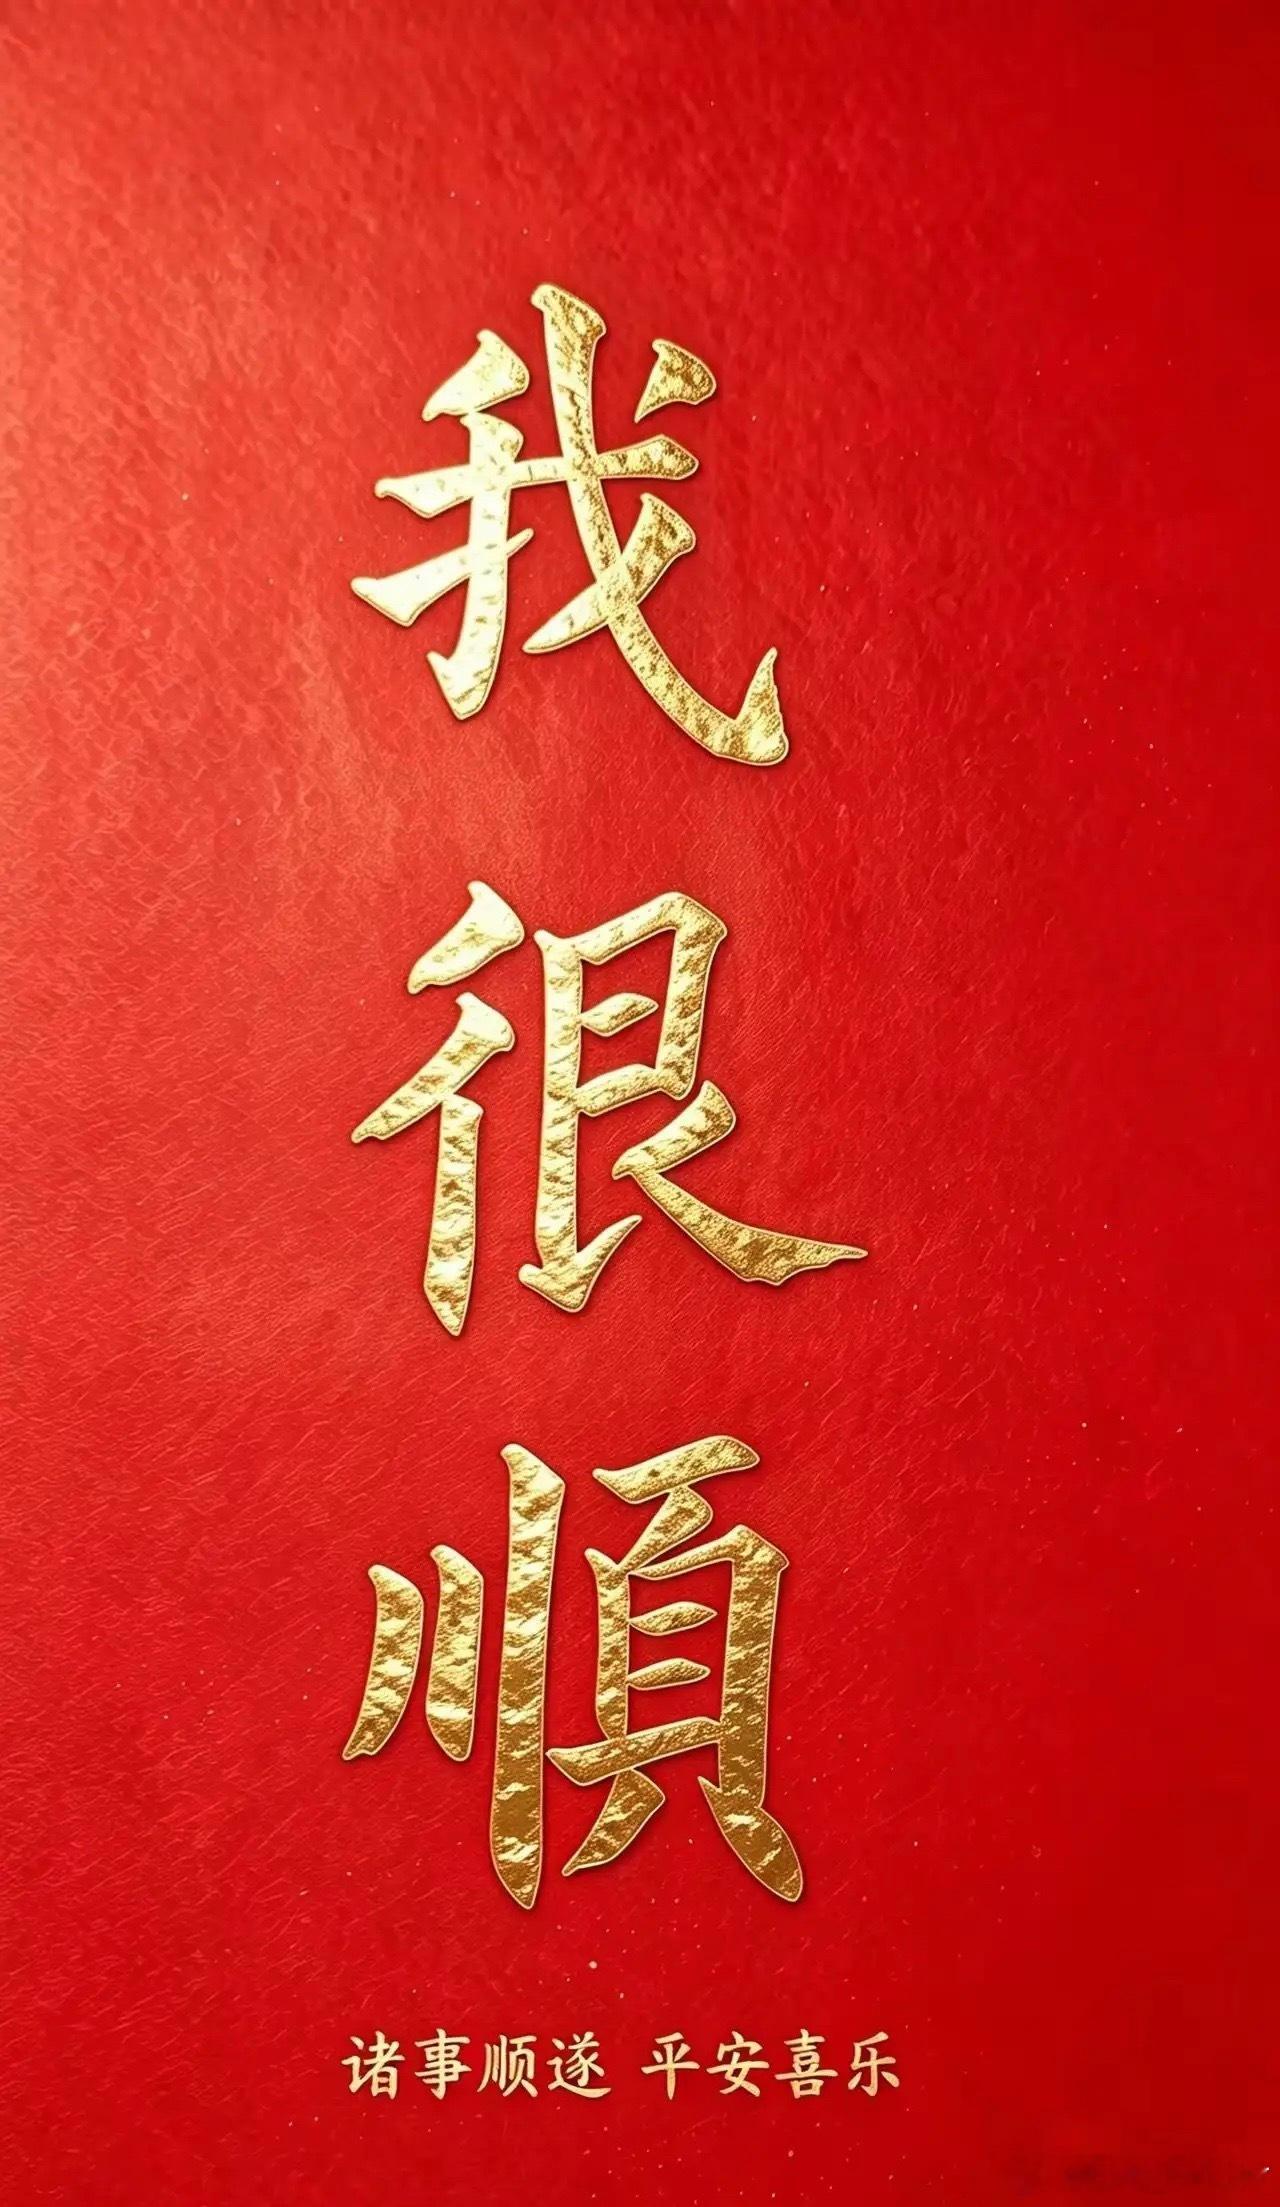 我很順
诸事顺遂 平安喜乐